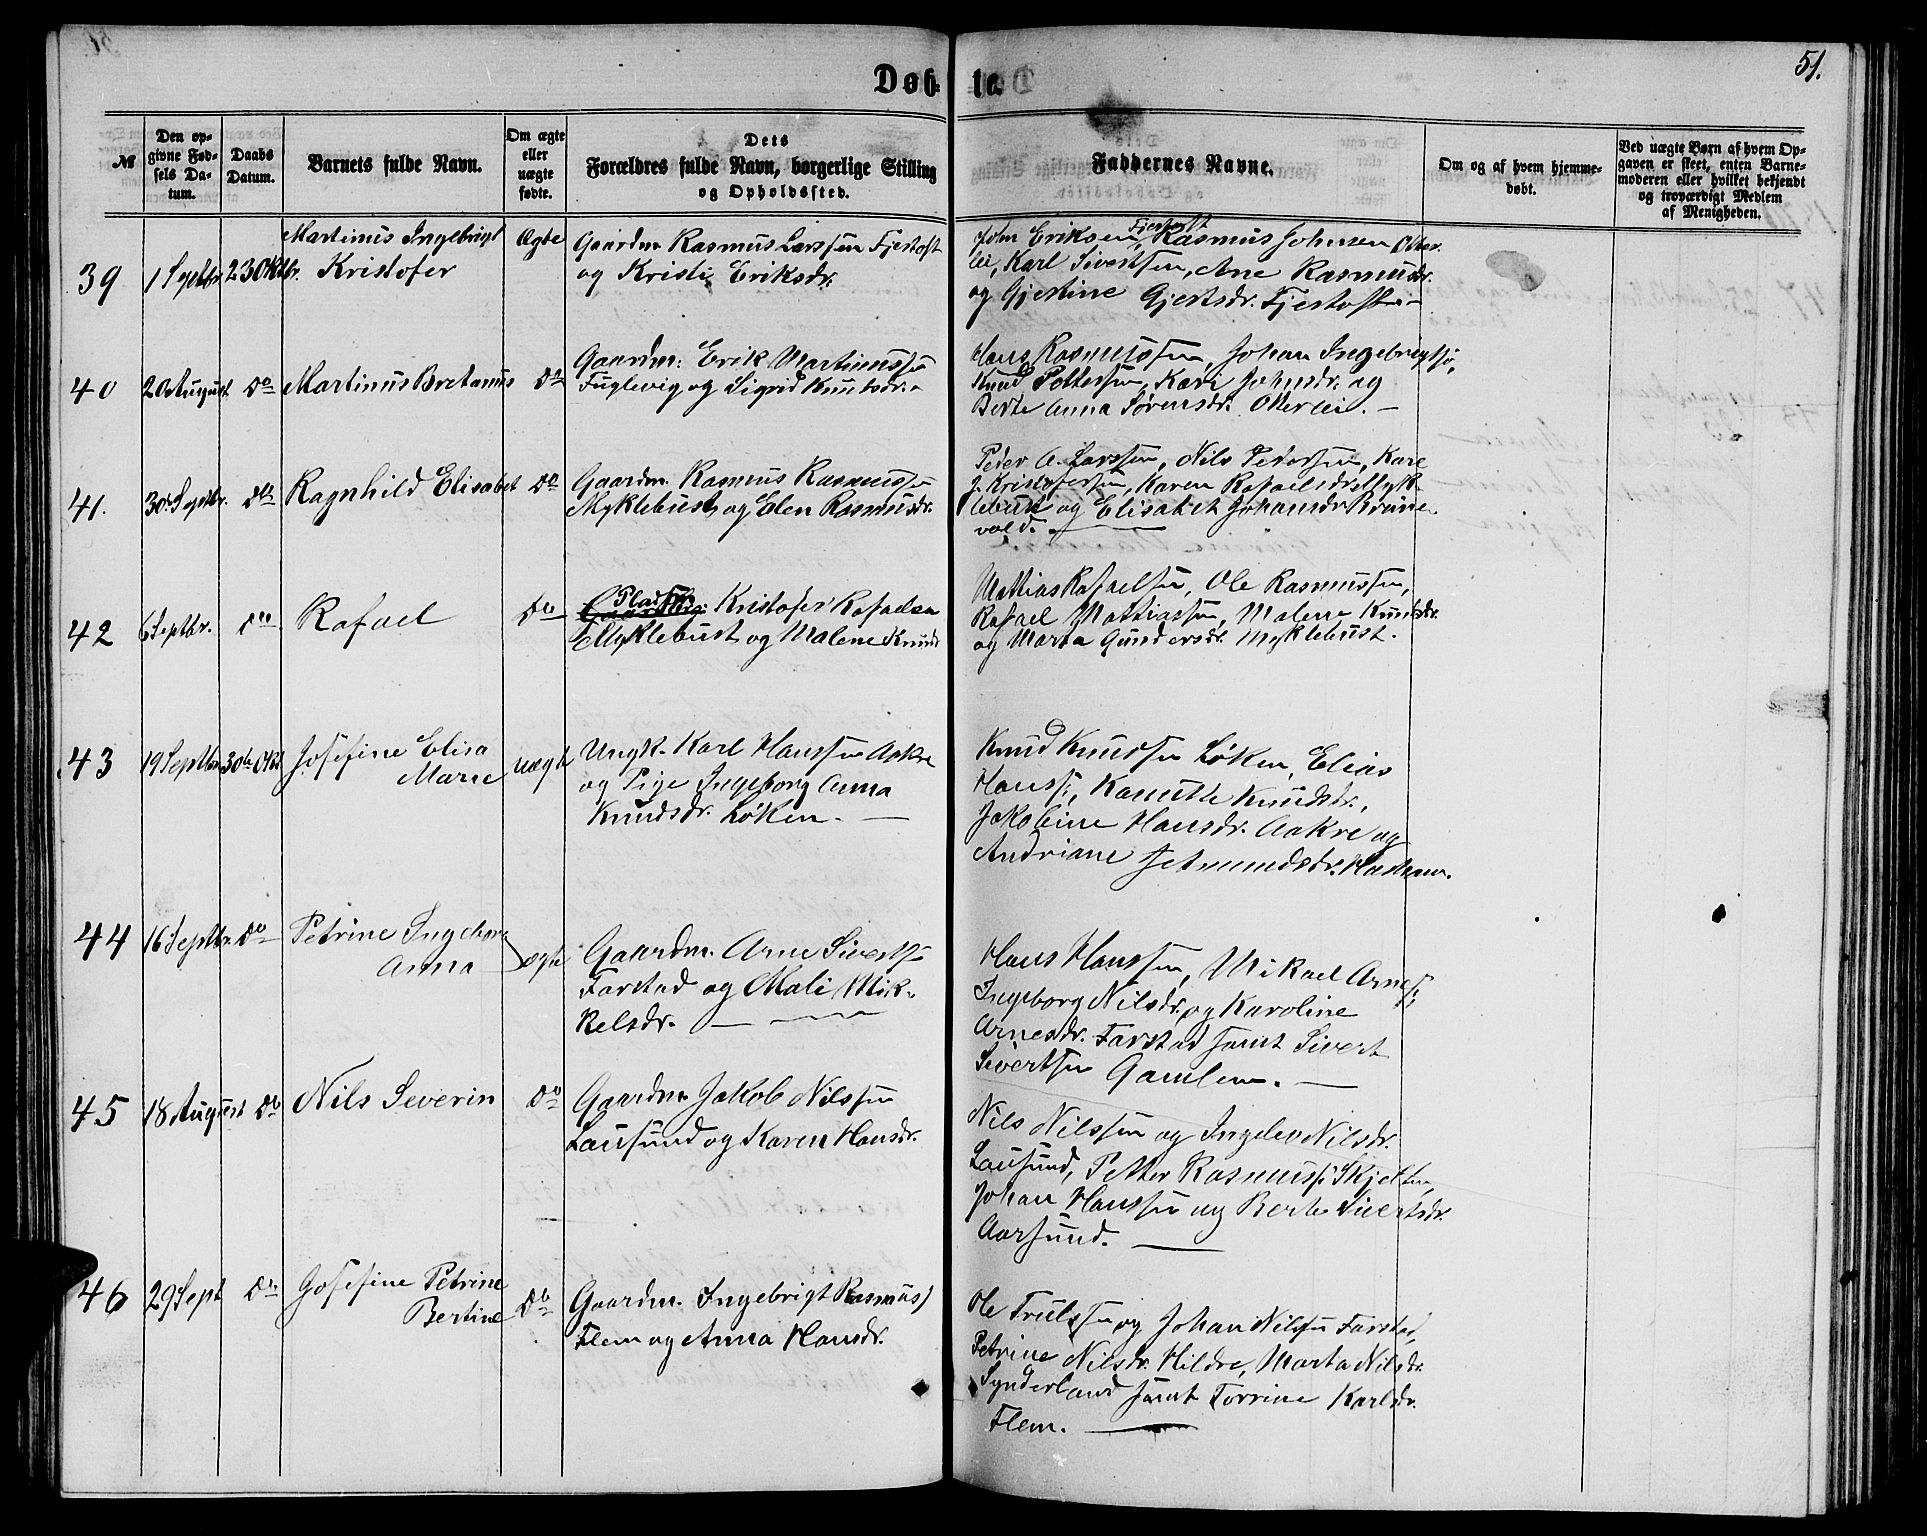 Døb- te.
51.
№
Den op-
givne Fød-
sels Da-
tum.
Daabs
Datum.
Barnets fulde Navn.
Om ægte
eller
uægte
fødte.
Dets
Forældres fulde Navn, borgerlige Stilling
og Opholdssted.
Faddernes Navne.
Om og af hvem hjemme-
døbt.
Ved uægte Børn af hvem Op-
gaven er skeet, enten Barne-
moderen eller hvilket bekjendt
og troværdigt Medlem
af Menigheden.
39
1 Septbr.
23 Oktbr.
Martinus Ingebrigt
Kristofer
Ægte
Gaardm. Rasmus Larssen Fjertoft
og Kristi Eriksdr.
Fjertoft
John Eriksen, Rasmus Johnsen Otter
lei, Karl Sivertsen, Ane Rasmusdr.
og Gjertine Gjertsdr. Fjertoft
40
20 August
Do
Martinus Bretanus
Do
Gaardm. Erik Martinussen
Fuglevig og Sigrid Knutsdr.
Hans Rasmussen, Johan Ingebrigtsø,
Knud Pettersen, Kari Johnsdr. og
Berte Anna Sørensdr. Otterlei. —
41.
30 Septbr.
Do
Ragnhild Elisabet
Do
Gaardm. Rasmus Rasmussen
Myklebust og Elen Rasmusdr.
Peder A. Larssen, Nils Pedersen, Karl
J. Kristofersen, Karen Rafaelsdr Myk-
lebust og Elisabet Johansdr Brune
vold. —
42
6 Septbr.
Do
Rafael
Do
Pladsm.
Gaardm. Kristofer Rafaelsen
Myklebust og Malene Knuds
Mattias Rafaelsen, Ole Rasmussen,
Rafael Mattiassen, Malene Knutsdr.
og Marta Gundersdr. Myklebust.
43
19 Septbr
30te Okt
Josefine Elisa
Marie
uægte
Ungk. Karl Hanssen Aakre
og Pige Ingeborg Anna
Knudsdr. Løken. —
Knud Knudsen Løken, Elias
Hanss:, Kanutte Knudsdr.,
Jakobine Hansdr. Aakre og
Andriane Amundsdr.
44
16 Septbr.
Do
Petrine Ingeborg
Anna
ægte
Gaardm. Arne Sivertsen
Farstad og Mali Mik-
kelsdr. —
Hans Hanssen, Mikael Arnes:
Ingeborg Nilsdr. og Karoline
Arnesdr. Farstad samt Sivert
Sivertsen Gamlem. —
45
18 August
Do
Nils Severin
Do
Gaardm Jakob Nilssen
Lausund og Karen Hansdr.
Nils Nilssen og Ingelev Nilsdr.
Lausund, Petter Rasmuss: Skjelten,
Johan Hanssen og Berte Sivertsdr.
Aarsund. —
46
29 Sept
Do
Josefine Petrine
Bertine
Do
Gaardm. Ingebrigt Rasmuss)
Flem og Anna Hansdr.
Ole Trulssen og Johan Nilssen Farstad,
Petrine Nilsdr. Hildre, Marta Nilsdr.
Synderland samt Torrine Karlsdr.
Flem. —